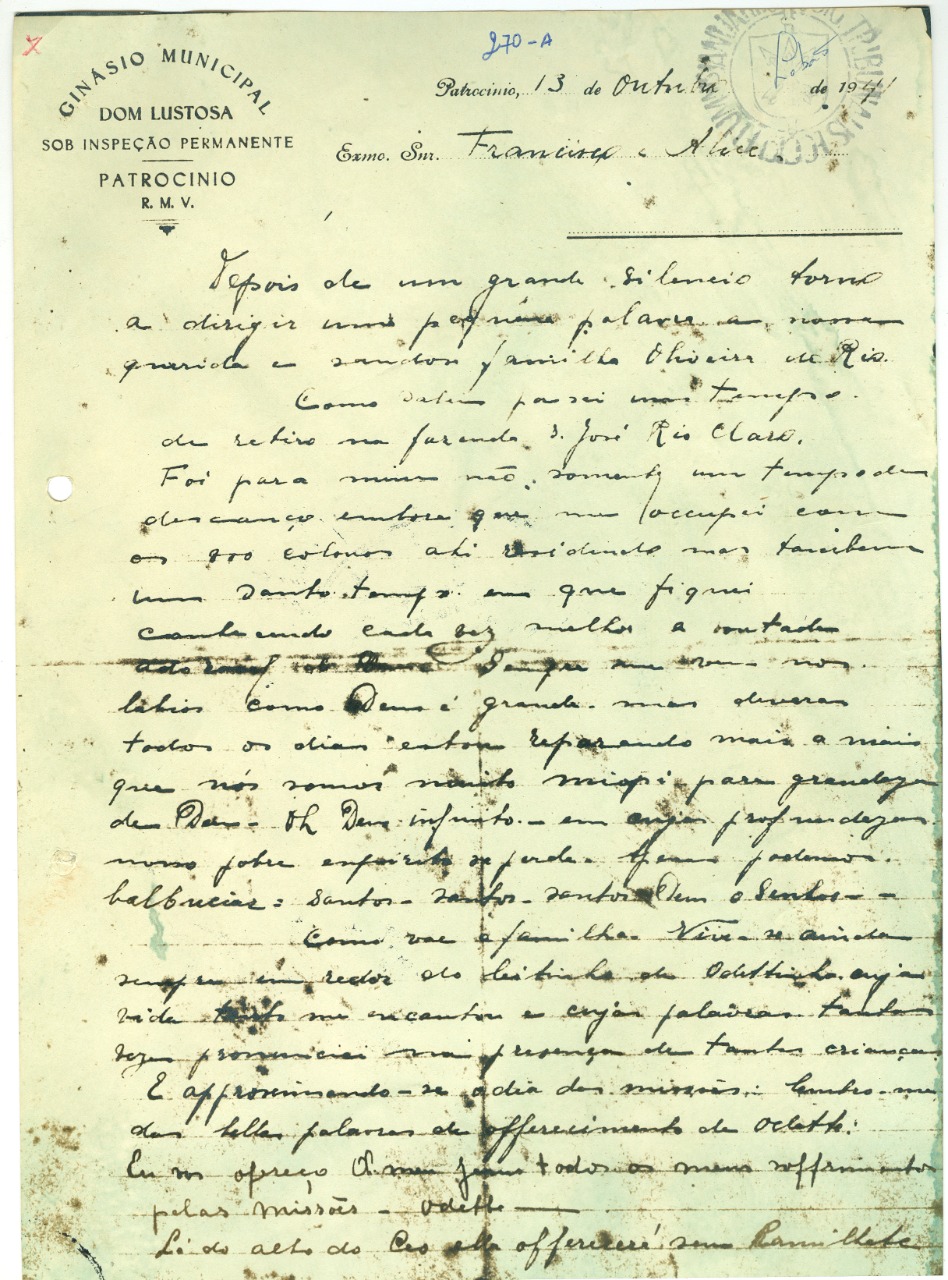 270-A
GINÁSIO MUNICIPAL
DOM LUSTOSA
SOB INSPEÇÃO PERMANENTE
PATROCINIO
R. M. V.
Patrocinio, 13 de Outubro de 1941
Exmo. Snr. Francisco e Alice
Depois de um grande silencio torno
a dirigir uma pequena palavra a nossa
querida e saudosa familha Oliveira de Rio.
Como sabem passei um tempo
de retiro na fazenda S. José Rio Claro.
Foi para mim não somente um tempo de
descanço embora que me occupei com
os 800 colonos ahi residindo mas tambem
um santo tempo em que fiquei
conhecendo cada vez melhor a vontade
de Deus. Sempre me vem nos
labios como Deus é grande. mas deveras
todos os dias estou reparando mais a mais
que nós somos muito miopi para grandeza
de Deus - Oh Deus infinito - em cujas profundezas
nosso pobre espirito se perde. podemos
balbuciar: Santos - santos - santos Deus o Senhor -
Como vae a familha. Vive-se ainda
sempre em redor do leitinho de Odettinha cuja
vida tanto me encantou e cujas palavras tantas
vezes pronunciei na presença de tantas crianças
E approximando-se o dia das missões: lembro-me
das bellas palavras de offerecimento de Odette:
Eu vos ofereço Oh meu Jesus todos os meus soffrimentos
pelas missões - Odette
Lá do alto do Ceo ella offerecerá seu Ramilhete